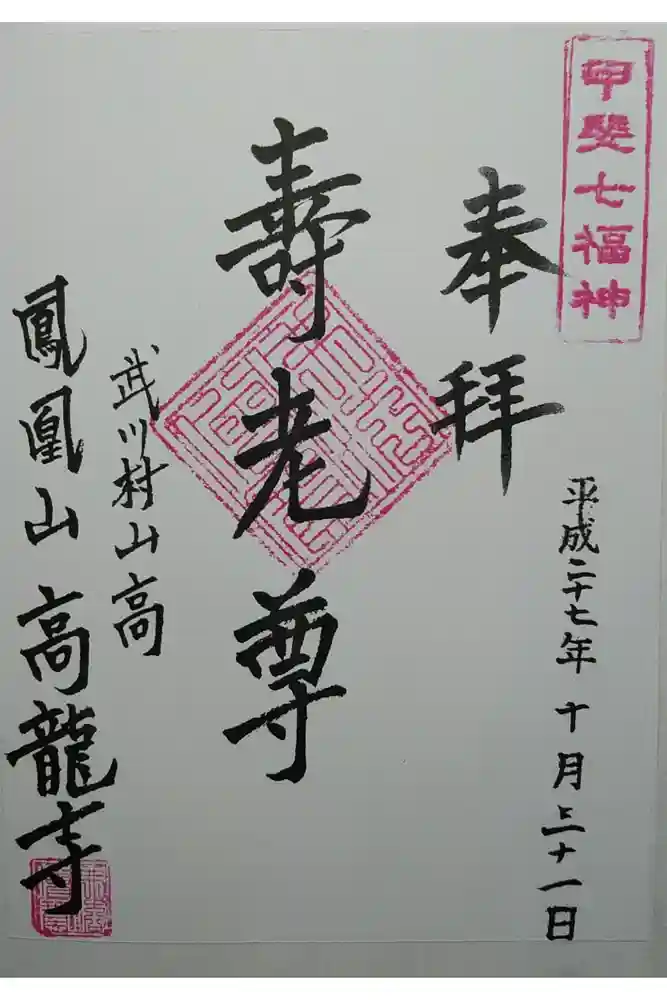 甲斐七福神
奉拝
平成二十七年 十月三十一日
壽老尊
武川村山高
鳳凰山 高龍寺